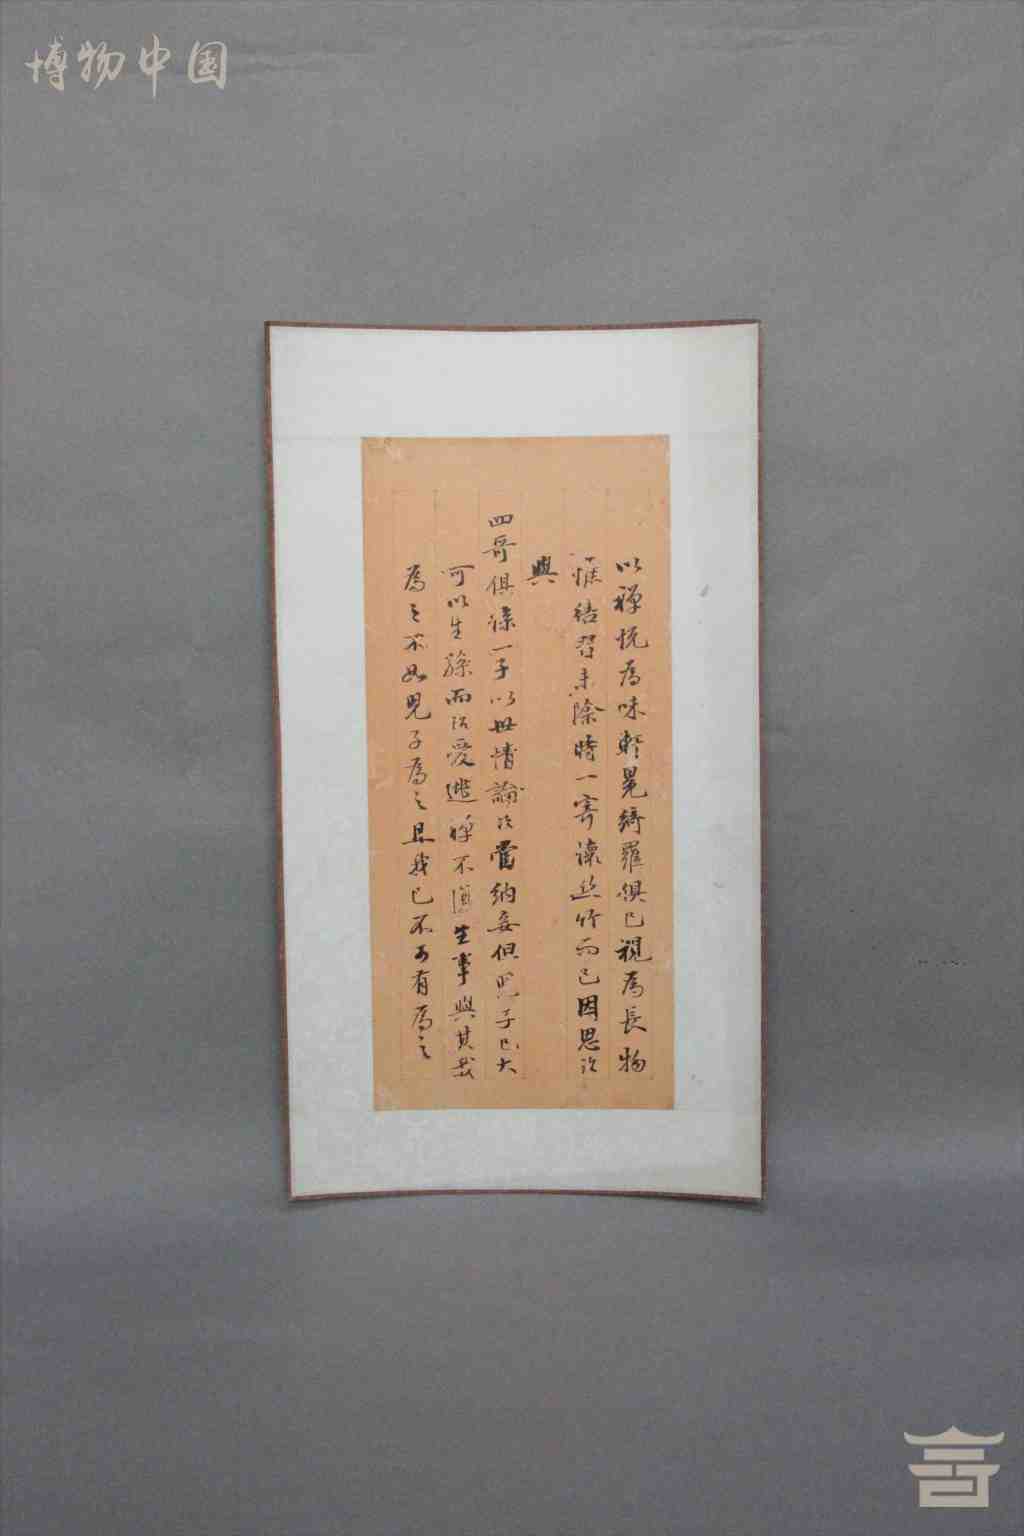 博物中国
以禪悦為味軒冕綺羅俱已視為長物
惟結習未除時一寄懷絲竹而已因思汝
與
四哥俱漆一子以世情論汝當納妾但兄子已大
可以生孫而汝愛逃禪不須生事與其我
為之不如兒子為之且我已不可有為之